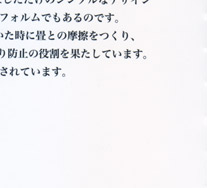 しただけのシンプルなデザイン
フォルムでもあるのです。
いた時に畳との摩擦をつくり、
り防止の役割を果たしています。
されています。